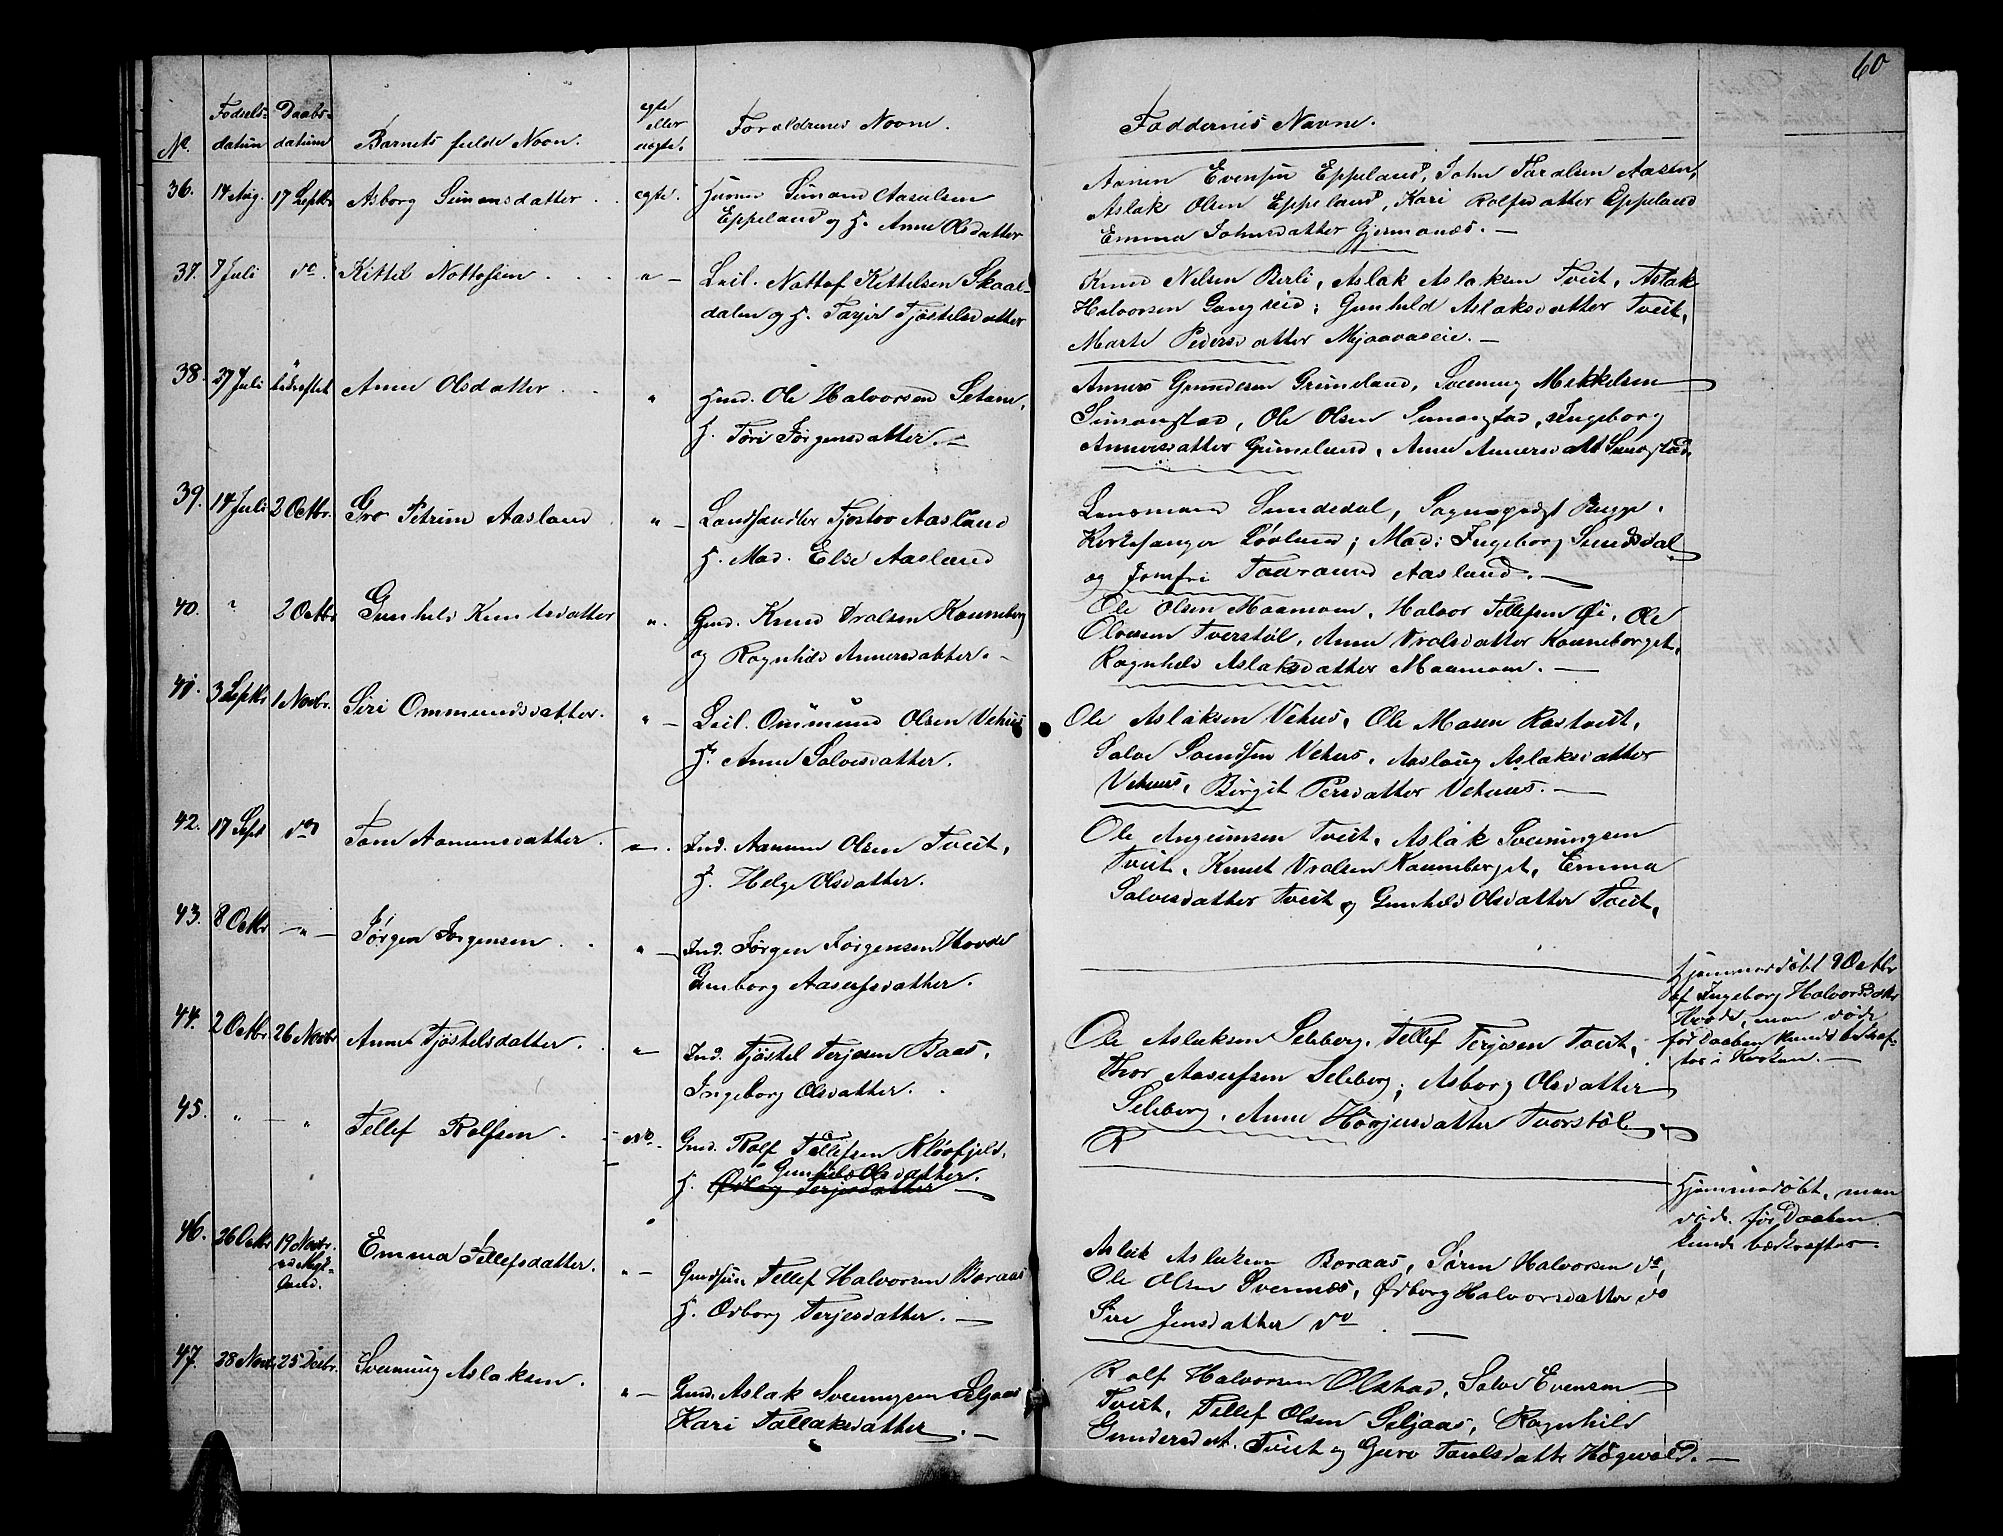 60
No. Fødsels-datum Daabs-datum Barnets fulde Navn. egte eller uegte. Forældrenes Navne. Faddernes Navne.
36. 14 Aug. 17 Septbr Asborg Simonsdatter egte.
Simond Aasulsen
Eppeland og H. Anne Olsdatter
Aanen Evensen Eppeland, John Taralsen Aasen,
Aslak Olsen Eppeland, Kari Rolfsdatter Eppeland
Emma Johnsdatter Gjermonæs. —
37. 7 Juli do. Kittel Nottofsen " —
Leil. Nottof Kittelsen Skaal-
dalen og H. Tarjer Tjøstelsdatter
Knud Nilsen Berli, Aslak Aslaksen Tveit, Aslak
Halvorsen Gangseid; Gunhild Aslaksdatter Tveit,
Marte Pedersdatter Mjaavaseie. —
38. 27 Juli bekræftet Anne Olsdatter "
Gmd. Ole Halvorsen Setane,
H. Tøri Jørgensdatter. —
Anners Gundersen Grimeland, Sveinung Mikkelsen
Simonstad, Ole Olsen Simonstad, Ingeborg
Annersdatter Grimeland, Anne Annersdatt Simostad.
39. 14 Juli 2 Octbr. Gro Petrine Aasland " —
Landhandler Tjøstov Aasland
H. Mad. Else Aasland
Lensmand Sundsdal, Sognepræst Bugge,
Kirkesanger Løvland; Mad: Ingeborg Sundsdal
og Jomfru Taaraand Aasland. —
40. " 2 Octbr Gunhild Knutsdatter ".
Gmd. Knud Vralsen Kauneberg
og Ragnhild Annersdatter. —
Ole Olsen Maamoen, Halvor Tellefsen Øi, Ole
Olvesen Tverstøl, Anne Vralsdatter Kauneborget,
Ragnhild Aslaksdatter Maamoen. —
41. 3 Septbr 1 Novbr. Siri Ommundsdatter. " —
Leil. Ommund Olsen Vehus
H. Anne Salvesdatter.
Ole Aslaksen Vehus, Ole Masen Rostveit,
Salve Svendsen Vehus, Aaslaug Aslaksdatter
Vehuus, Birgit Persdatter Vehuus. —
42. 17 Sept do Tone Aanensdatter. —
Ind. Aanen Olsen Tveit,
H. Helge Olsdatter.
Ole Augunsen Tveit, Aslak Sveinungsen
Tveit, Knut Vralsen Kauneberget, Emma
Salvesdatter Tveit og Gunhild Olsdatter Tveit,
43. 8 Octbr — " — Jørgen Jørgensen " —
Ind. Jørgen Jørgensen Hovde
Gunborg Aasulfsdatter.
Hjemmedøbt 9 Octbr
af Ingeborg Halvorsdatter
Hovde, men døde
før Daaben kunde bekræf-
tes i Kirken. —
44. 2 Octbr. 26 Novbr Anne Tjøstelsdatter. —
Ind. Tjøstel Terjesen Baas,
Ingeborg Olsdatter.
Ole Aslaksen Seleberg, Tellef Terjesen Tveit,
Thor Aasulfsen Seleberg; Asborg Olsdatter
Seleberg, Anne Høvjensdatter Tverstøl
R
45. " — " Tellef Rolfsen.
Gmd. Rolf Tellefsen Kløvfjeld,
Gunhild Olsdatter.
H. Odborg Terjesdatter —
Hjemmedøbt, men
døde før Daaben
kunde bekræftes.
46. 26 Octbr 19 Novbr. Emma Tellefsdatter. " —
Tellef Halvorsen Boraas
H. Odborg Terjesdatter. —
Aslak Aslaksen Boraas, Søren Halvorsen do,
Ole Olsen Svennæs, Ødborg Halvorsdatter do
Siri Jensdatter do —
47. 28 Nov. 25 Decbr. Sveinung Aslaksen. " —
Gmd. Aslak Sveinungsen Seljaas
Kari Tallaksdatter. —
Rolf Halvorsen Ølstad, Salve Evensen
Tveit, Tellef Olsen Seljaas, Ragnhild
Gundersdat. Tveit og Guro Taralsdatt. Høgevold. —